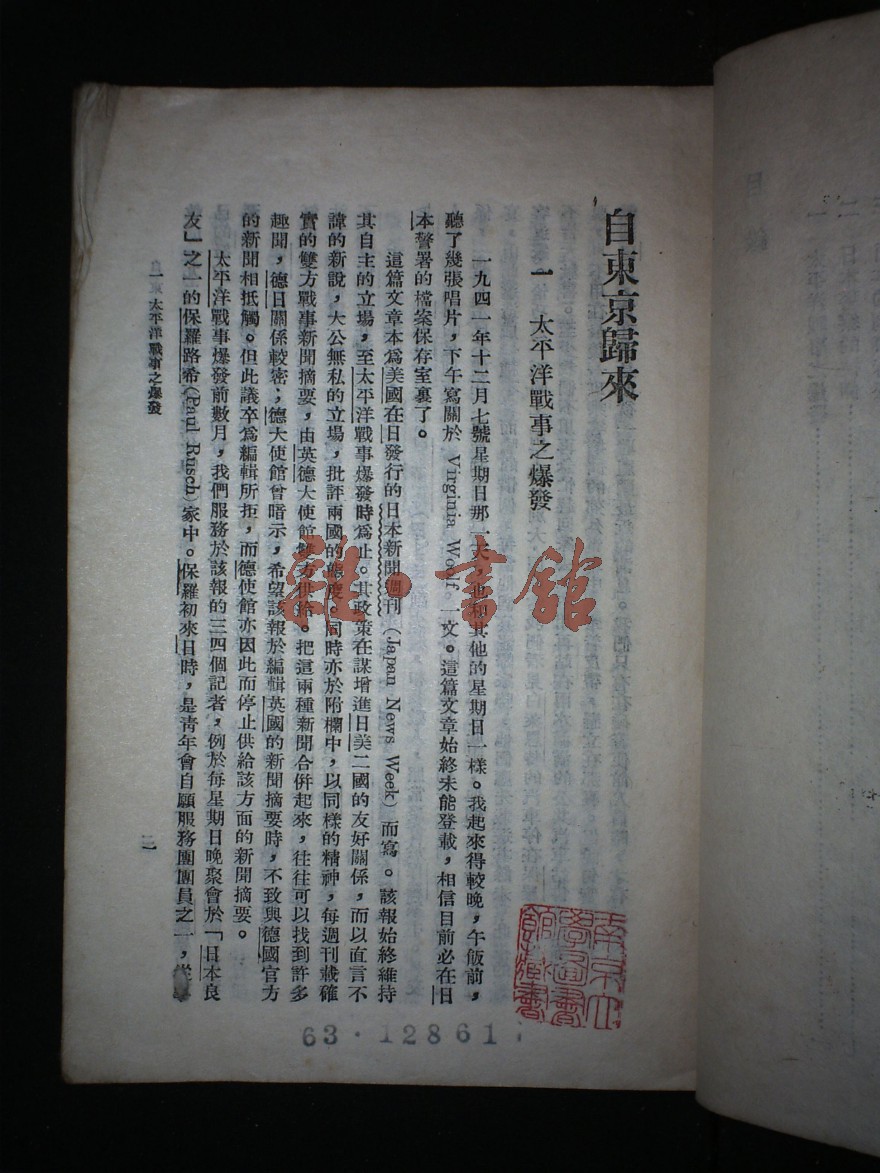 自東京歸來
一 太平洋戰事之爆發
一九四一年十二月七號星期日那一天，也和其他的星期日一樣。我起來得較晚，午飯前，
聽了幾張唱片，下午寫關於 Virginia Woolf 一文。這篇文章始終未能登載，相信目前必在日
本警署的檔案保存室裏了。
這篇文章本爲美國在日發行的日本新聞週刊 (Japan News Week) 而寫。該報始終維持
其自主的立場，至太平洋戰事爆發時爲止。其政策在謀增進日美二國的友好關係，而以直言不
諱的新說，大公無私的立場，批評兩國的態度。同時亦於附欄中，以同樣的精神，每週刊載確
實的雙方戰事新聞摘要，由英德大使館雙方供給。把這兩種新聞合併起來，往往可以找到許多
趣聞，德日關係較密；德大使館曾暗示，希望該報於編輯英國的新聞摘要時，不致與德國官方
的新聞相抵觸。但此議卒爲編輯所拒，而德使館亦因此而停止供給該方面的新聞摘要。
太平洋戰事爆發前數月，我們服務於該報的三四個記者，例於每星期日晚聚會於「日本良
友」之一的保羅路希(Paul Rusch)家中。保羅初來日時，是青年會自願服務團團員之一，
一 太平洋戰事之爆發
雜·書館
63·12861